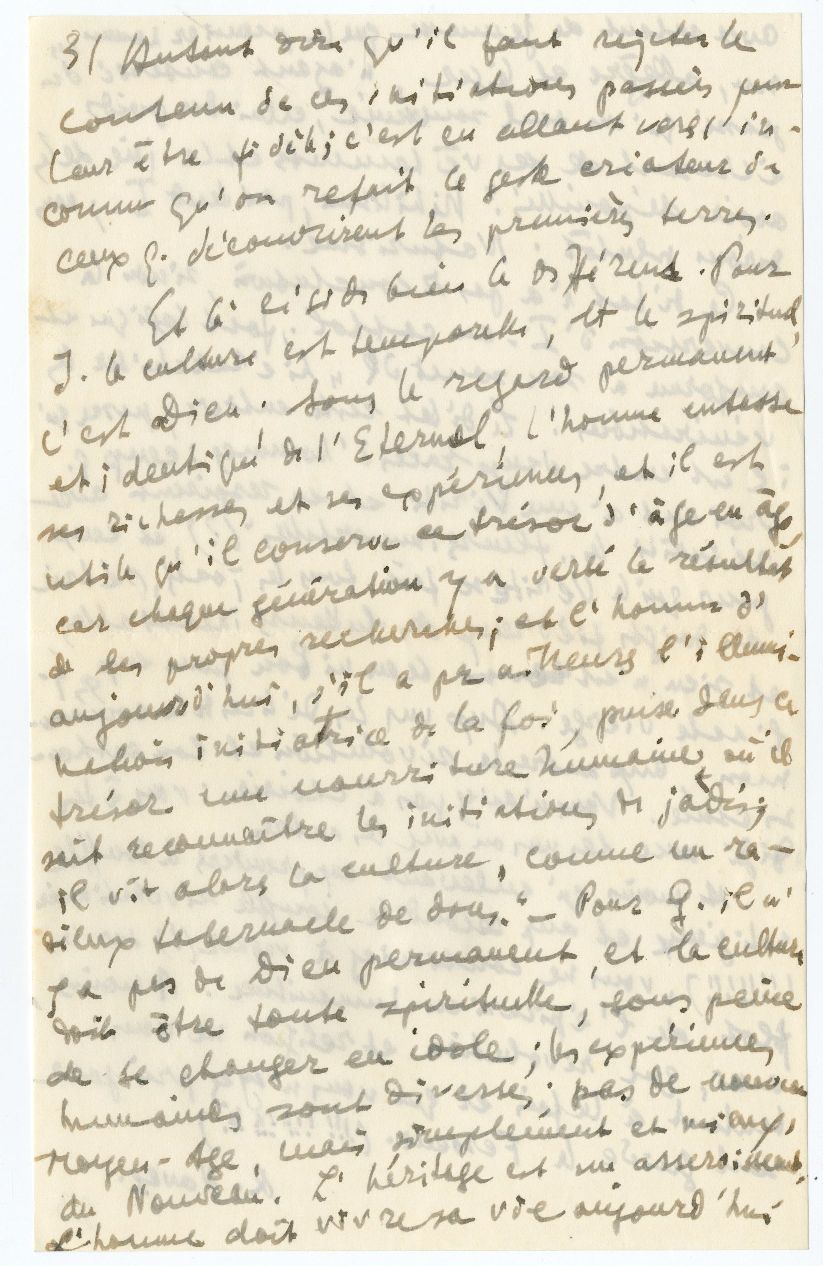 3/ Autant dire qu'il faut rejeter le
contenu de ces initiations passées pour
leur être fidèle; c'est en allant vers l'in-
connu qu'on refait le geste créateur de
ceux q. découvrirent les premières terres.
Et là réside bien le différend. Pour
J. la culture est temporelle, et le spirituel,
c'est Dieu; sous le regard permanent
et identique de l'Eternel, l'homme entasse
ses richesses et ses expériences, et il est
utile qu'il conserve ce trésor d'âge en âge,
car chaque génération y a versé le résultat
de ses propres recherches; et l'homme d'
aujourd'hui, s'il a par ailleurs l'illumi-
nation initiatrice de la foi, puise dans ce
trésor une nourriture humaine, où il
sait reconnaître les initiations de jadis;
il vit alors la culture, comme un ra-
dieux tabernacle de dons." — Pour G. il n'
y a pas de Dieu permanent, et la culture
doit être toute spirituelle, sous peine
de se changer en idole; les expériences
humaines sont diverses; pas de nouveau
Moyen-Age, mais simplement et mieux,
du Nouveau. L'héritage est un asservissement,
L'homme doit vivre sa vie aujourd'hui